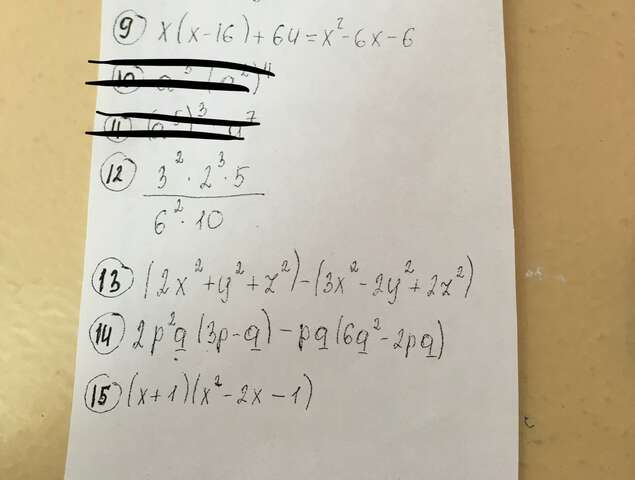 9 x(x-16)+64=x²-6x-6
12 3²·2³·5
6²·10
13 (2x²+y²+z²)-(3x²-2y²+2z²)
14 2p²q(3p-q)-pq(6q²-2pq)
15 (x+1)(x²-2x-1)